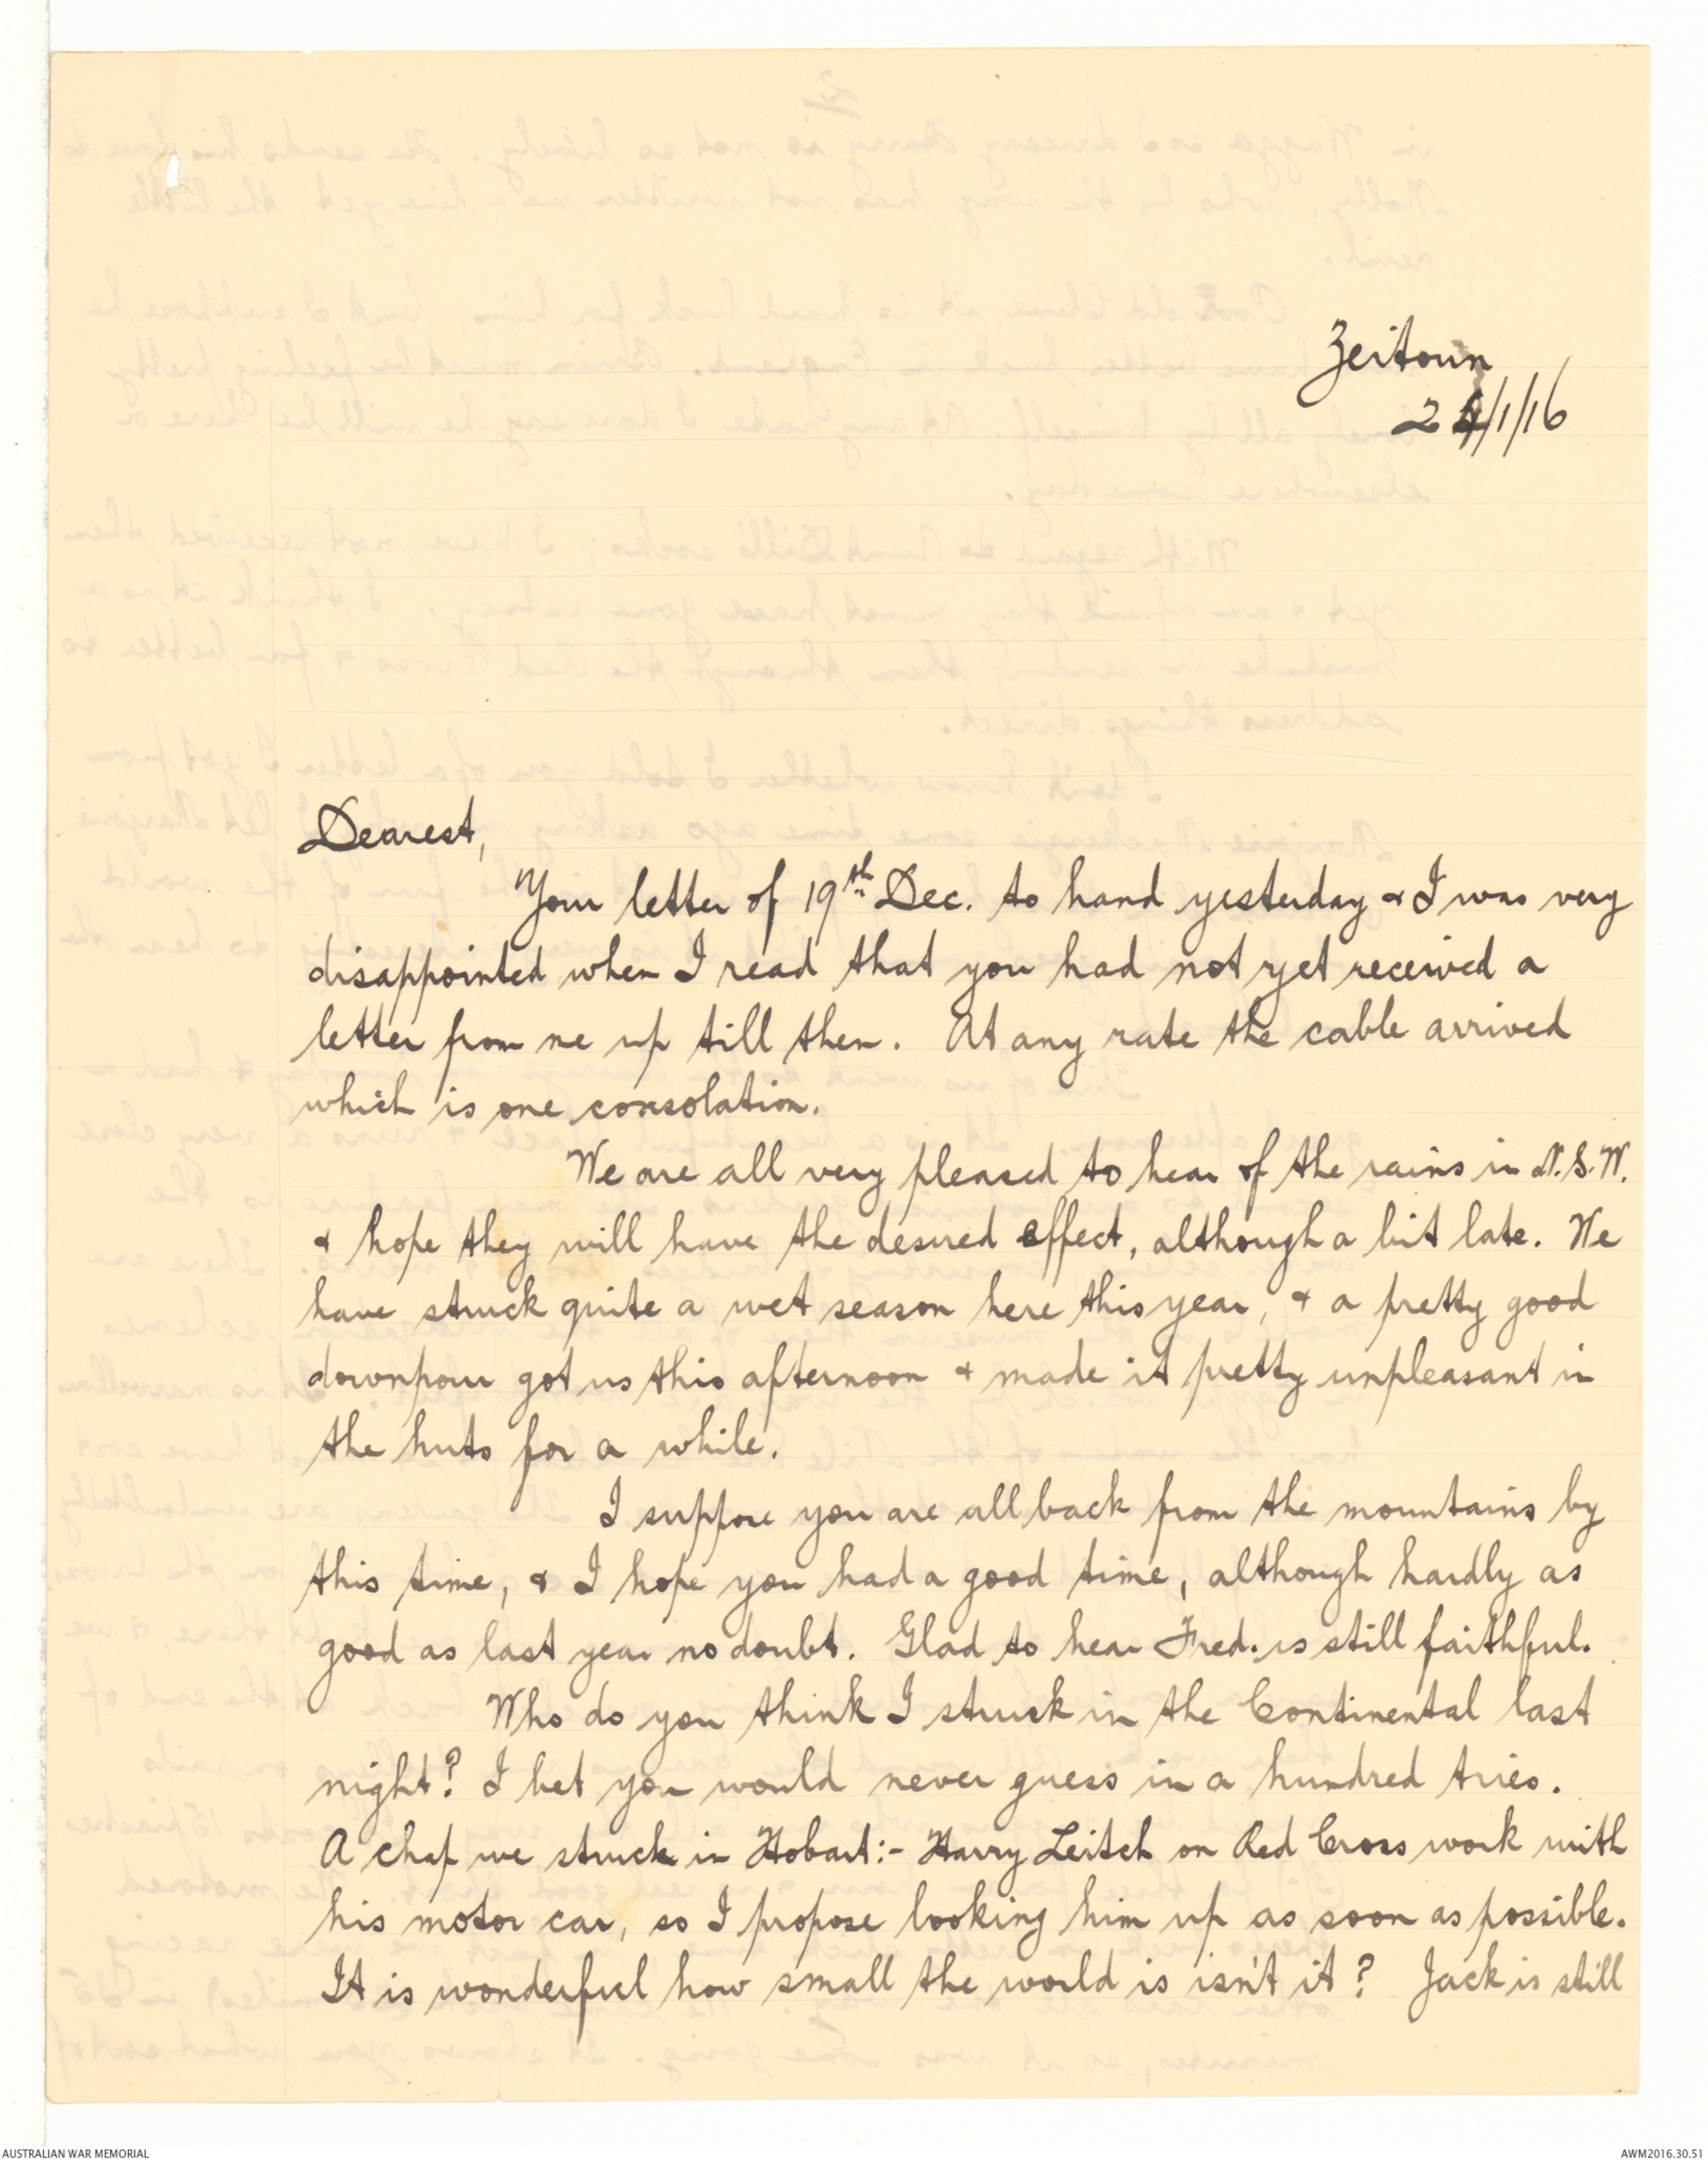 Zeitoun
24/1/16
Dearest,
Your letter of 19th Dec. to hand yesterday & I was very
disappointed when I read that you had not yet received a
letter from me up till then. At any rate the cable arrived
which is one consolation.
We are all very pleased to hear of the rains in N.S.W.
& hope they will have the desired effect, although a bit late. We
have struck quite a wet season here this year, & a pretty good
downpour got us this afternoon & made it pretty unpleasant in
the huts for a while.
I suppose you are all back from the mountains by
this time, & I hope you had a good time, although hardly as
good as last year no doubt. Glad to hear Fred. is still faithful.
Who do you think I struck in the Continental last
night? I bet you would never guess in a hundred tries.
A chap we struck in Hobart:- Harry Leitch on Red Cross work with
his motor car, so I propose looking him up as soon as possible.
It is wonderful how small the world is isn't it? Jack is still
AUSTRALIAN WAR MEMORIAL
AWM2016.30.51